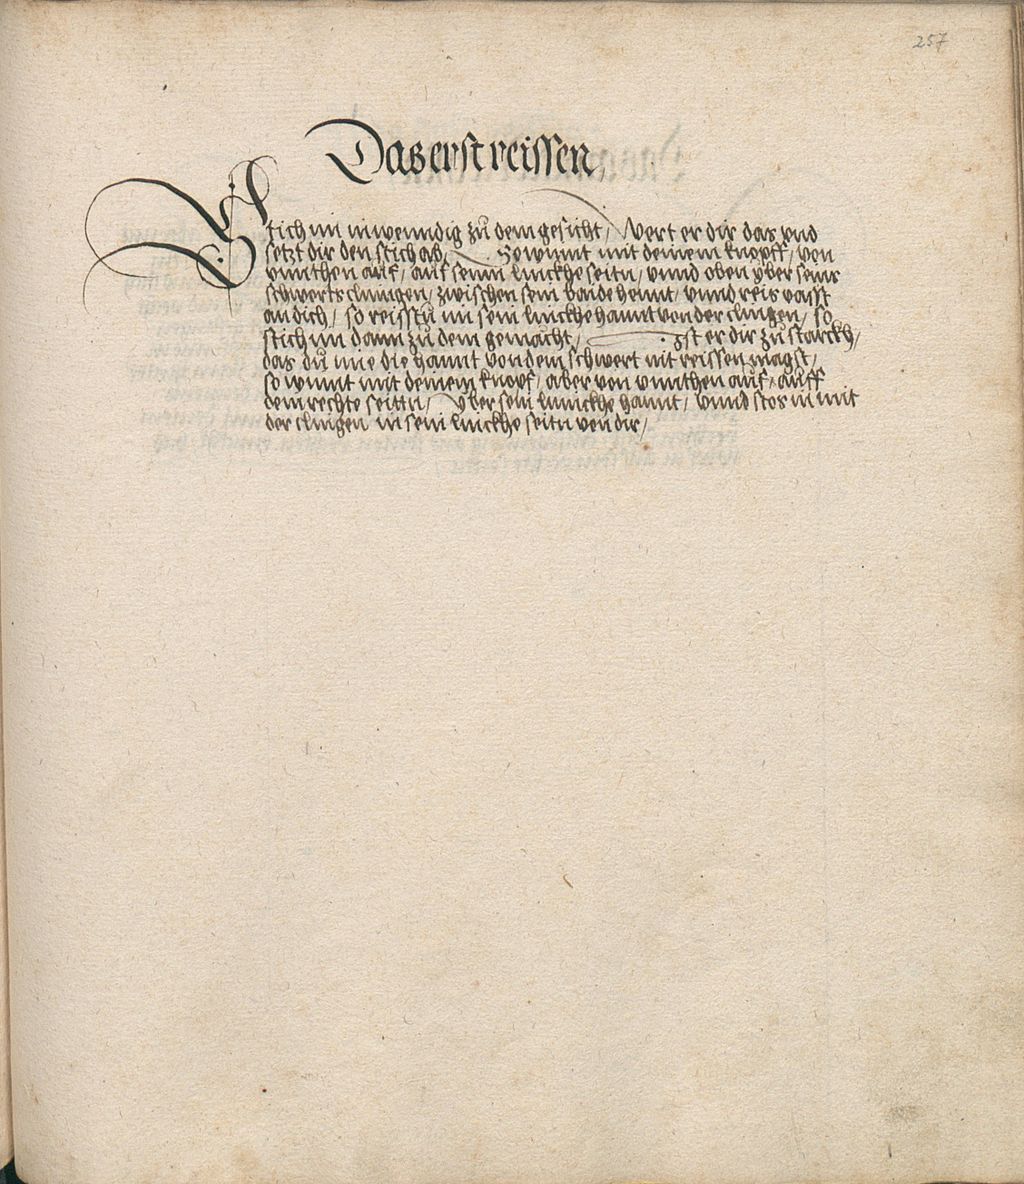 257
Das erst reissen,
Stich im inwenndig zu dem gesicht, Wert er dir das vnd
setzt dir den stich ab, So winnt mit deinem knopff, von
vnnthen auf, auf seinn linckhe seitn, vnnd oben vber seins
schwerts clingen, zwischen sein baide hennt, vnnd reis vasst
an dich, so reisstu im sein linckhe hannt von der clingen, so
stich im dann zu dem gemächt, Ist er dir zu starckh,
das du nnie die hannt von dem schwert nit reissen magst,
so winnt mit deinem knopf, aber von vnnthen auf, auff
dem rechte seittn, vber sein linnckhe hannt, vnnd stos in mit
der clingen in sein linckhe seitn von dir,